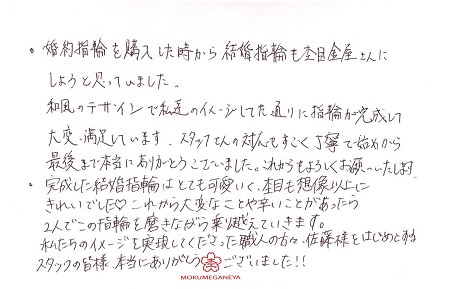 ・婚約指輪を購入した時から結婚指輪も杢目金屋さんに
しようと思っていました。
和風のデザインで私達のイメージしてた通りに指輪が完成して
大変、満足しています。スタッフさんの対応もすごく丁寧で始めから
最後まで本当にありがとうございました。これからもよろしくお願いいたします。
・完成した結婚指輪はとても可愛いく、木目も想像以上に
きれいでした♡ これから大変なことや辛いことがあったら
2人でこの指輪を磨きながら乗り越えていきます。
私たちのイメージを実現してくださった職人の方々、佐藤様をはじめとする
スタッフの皆様、本当にありがとうございました!!
MOKUMEGANEYA